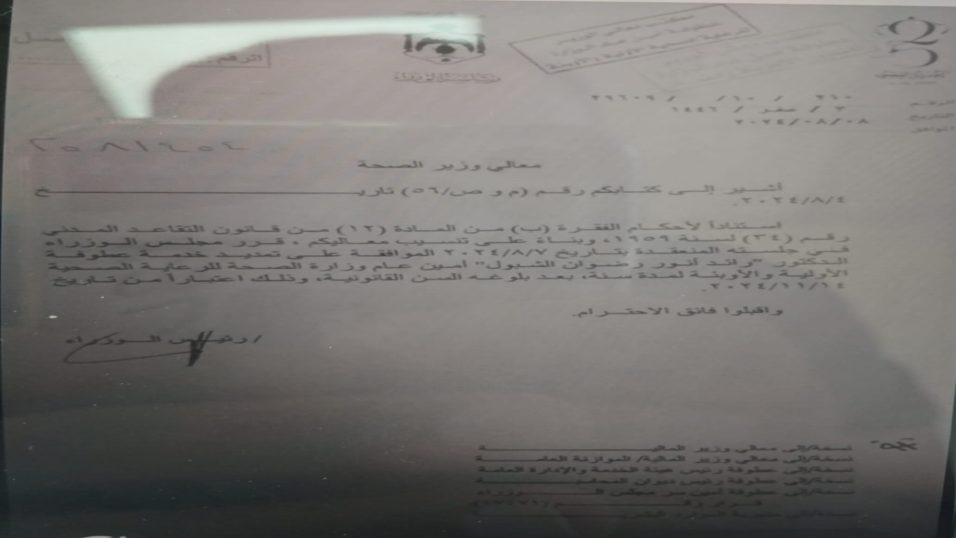 الرقم ٢١٠ / ١٠ / / ٢٩٦٠٩
التاريخ ٣ / صفر / ١٤٤٦
الموافق ٢٠٢٤/٠٨/٠٨
معالي وزير الصحة
أشير إلى كتابكم رقم (م و ص/٥٦) تاريخ
٢٠٢٤/٨/٤.
استناداً لأحكام الفقرة (ب) من المادة (١٢) من قانون التقاعد المدني
رقم (٣٤) لسنة ١٩٥٩، وبناءً على تنسيب معاليكم، قرر مجلس الوزراء
في جلسته المنعقدة بتاريخ ٢٠٢٤/٨/٧ الموافقة على تمديد خدمة عطوفة
الدكتور "رائد أنور رضوان الشبول" أمين عام وزارة الصحة للرعاية الصحية
الأولية والأوبئة لمدة سنة، بعد بلوغه السن القانونية، وذلك اعتباراً من تاريخ
٢٠٢٤/١١/١٤.
واقبلوا فائق الاحترام،
/رئيس الوزراء
نسخة/إلى معالي وزير المالية
نسخة/إلى معالي وزير المالية/ الموازنة العامة
نسخة/إلى عطوفة رئيس هيئة الخدمة والإدارة العامة
نسخة/إلى عطوفة رئيس ديوان المحاسبة
نسخة/إلى عطوفة أمين سر مجلس الوزراء